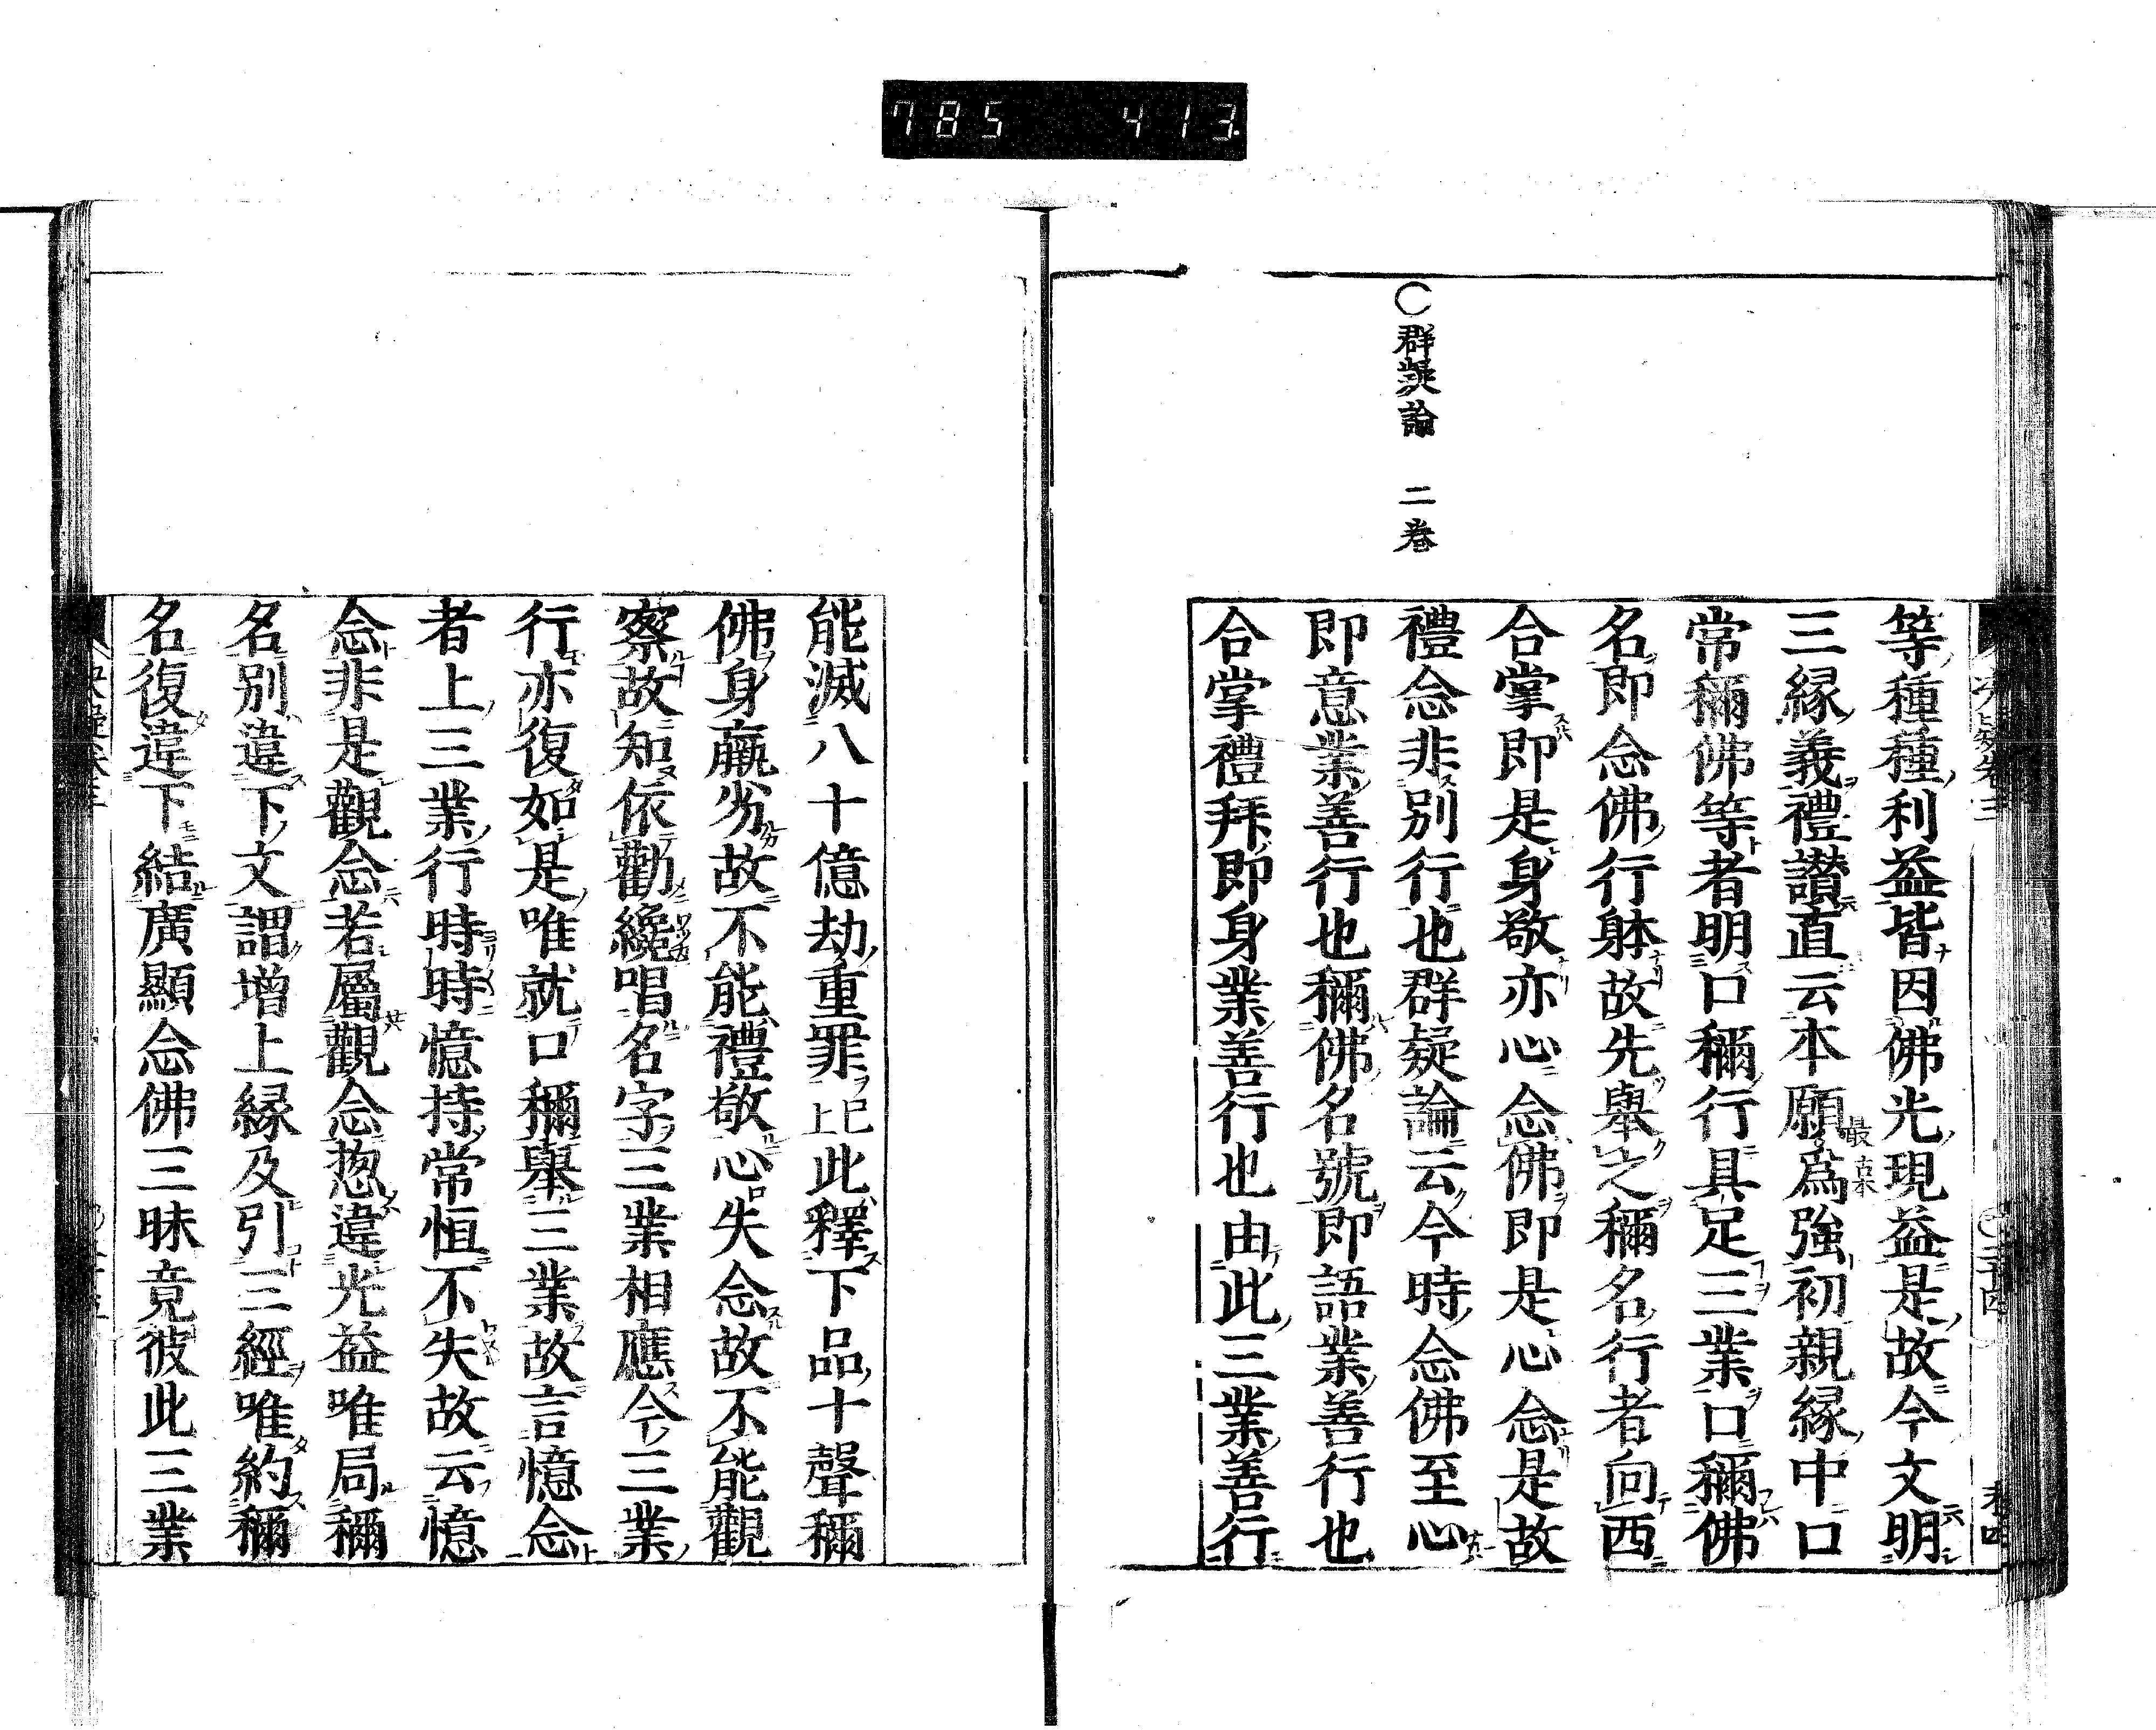 785 413
○群疑論 二卷
等種種利益皆因佛光現益是故今文明
三縁義禮讃直云本願爲強初親縁中口
最古本
常稱佛等者明口稱行具足三業口稱佛
名即念佛行躰故先舉之稱名行者向西
合掌即是身敬亦心念佛即是心念是故
禮念非別行也群疑論云今時念佛至心
即意業善行也稱佛名號即語業善行也
合掌禮拜即身業善行也由此三業善行
能滅八十億劫重罪已上此釋下品十聲稱
佛身羸劣故不能禮敬心失念故不能觀
察故知依勸纔唱名字三業相應今三業
行亦復如是唯就口稱舉三業故言憶念
者上三業行時時憶持常恒不失故云憶
念非是觀念若屬觀念怱違光益唯局稱
名別違下文謂增上縁及引三經唯約稱
名復違下結廣顯念佛三昧竟彼此三業